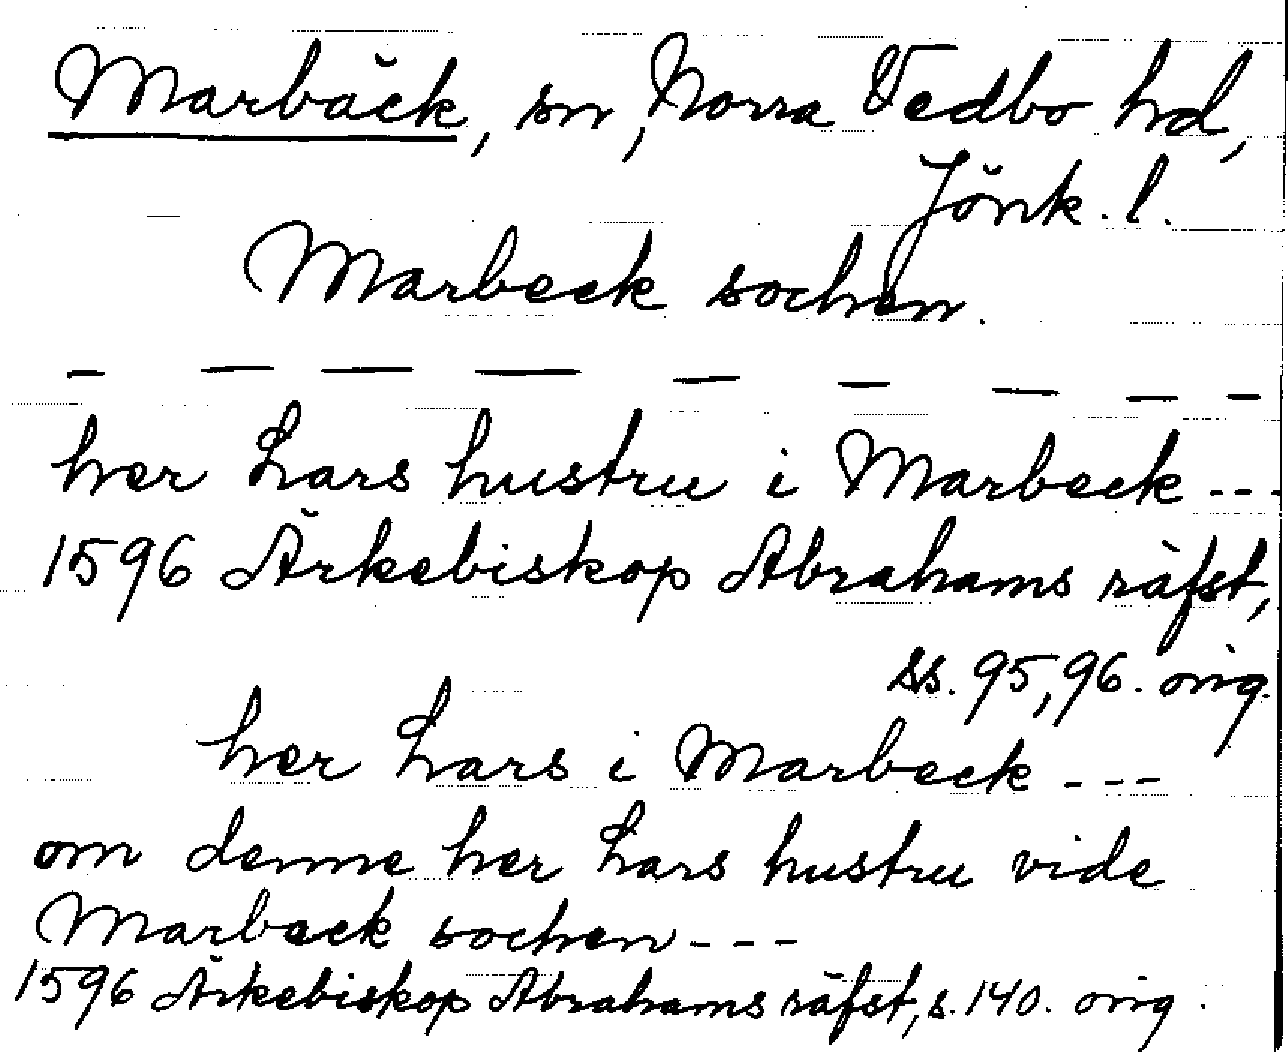 Marbäck, sn, Norra Vedbo hd,
Jönk. l.
Marbeck sochen.
— — — — — — — — —
her Lars hustru i Marbeck ---
1596 Ärkebiskop Abrahams räfst,
ss. 95, 96. orig.
her Lars i Marbeck ---
om denne her Lars hustru vide
Marbeck sochen ---
1596 Ärkebiskop Abrahams räfst, s. 140. orig.